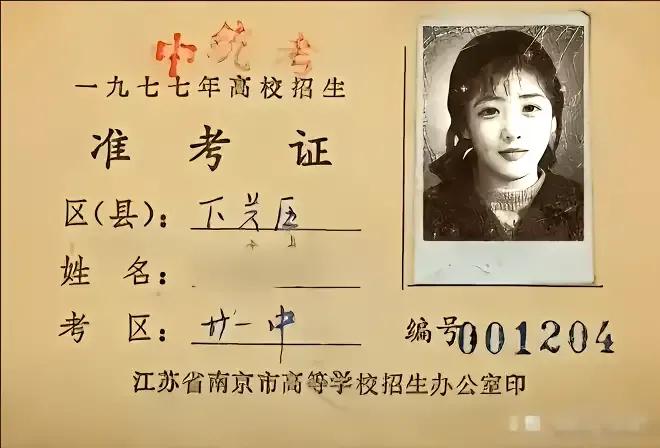 中统考
一九七七年高校招生
准考证
区(县): 下关区
姓名:
考区: 廿一中
编号 001204
江苏省南京市高等学校招生办公室印